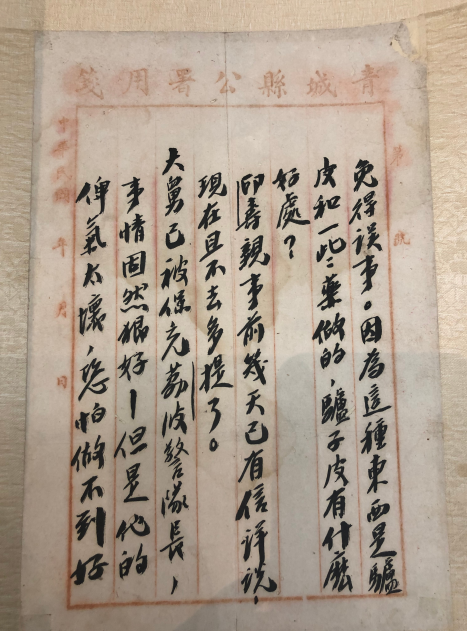 青城縣公署用箋
第 號
免得誤事。因為這種東西是驢
皮和一些藥做的，驢子皮有什麼
好處？
壽親事前幾天已有信詳說，
現在且不去多提了。
大舅已被保充荔波警隊長，
事情固然狠好—但是他的
俾氣太壞，恐怕做不到好
中華民國 年 月 日